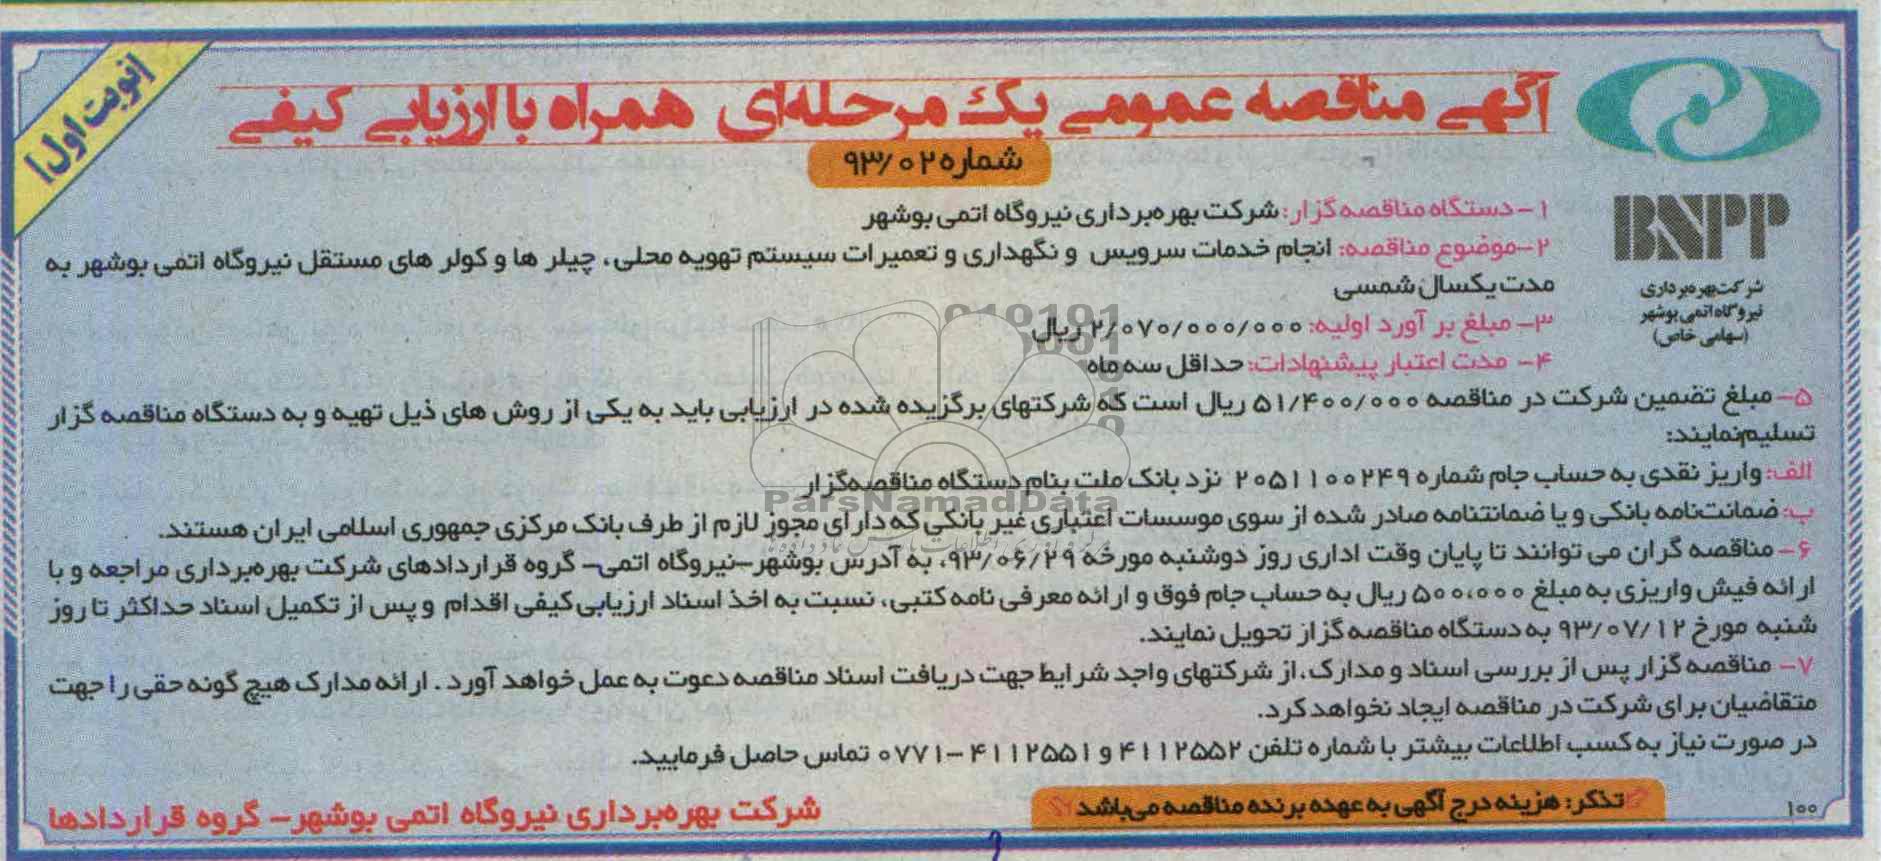 نوبت اول
آگهی مناقصه عمومی یک مرحله‌ای همراه با ارزیابی کیفی
شماره ۹۳/۰۲
BNPP
شرکت بهره‌برداری
نیروگاه اتمی بوشهر
(سهامی خاص)
۱- دستگاه مناقصه گزار: شرکت بهره‌برداری نیروگاه اتمی بوشهر
۲- موضوع مناقصه: انجام خدمات سرویس و نگهداری و تعمیرات سیستم تهویه محلی، چیلر ها و کولر های مستقل نیروگاه اتمی بوشهر به
مدت یکسال شمسی
۳- مبلغ بر آورد اولیه: ۲/۰۷۰/۰۰۰/۰۰۰ ریال
۴- مدت اعتبار پیشنهادات: حداقل سه ماه
۵- مبلغ تضمین شرکت در مناقصه ۵۱/۴۰۰/۰۰۰ ریال است که شرکتهای برگزیده شده در ارزیابی باید به یکی از روش های ذیل تهیه و به دستگاه مناقصه گزار
تسلیم نمایند:
الف: واریز نقدی به حساب جام شماره ۲۰۵۱۱۰۰۲۴۹ نزد بانک ملت بنام دستگاه مناقصه‌گزار
ب: ضمانت‌نامه بانکی و یا ضمانتنامه صادر شده از سوی موسسات اعتباری غیر بانکی که دارای مجوز لازم از طرف بانک مرکزی جمهوری اسلامی ایران هستند.
۶- مناقصه گران می توانند تا پایان وقت اداری روز دوشنبه مورخه ۹۳/۰۶/۲۹، به آدرس بوشهر-نیروگاه اتمی- گروه قراردادهای شرکت بهره‌برداری مراجعه و با
ارائه فیش واریزی به مبلغ ۵۰۰،۰۰۰ ریال به حساب جام فوق و ارائه معرفی نامه کتبی، نسبت به اخذ اسناد ارزیابی کیفی اقدام و پس از تکمیل اسناد حداکثر تا روز
شنبه مورخ ۹۳/۰۷/۱۲ به دستگاه مناقصه گزار تحویل نمایند.
۷- مناقصه گزار پس از بررسی اسناد و مدارک، از شرکتهای واجد شرایط جهت دریافت اسناد مناقصه دعوت به عمل خواهد آورد. ارائه مدارک هیچ گونه حقی را جهت
متقاضیان برای شرکت در مناقصه ایجاد نخواهد کرد.
در صورت نیاز به کسب اطلاعات بیشتر با شماره تلفن ۴۱۱۲۵۵۲ و ۴۱۱۲۵۵۱-۰۷۷۱ تماس حاصل فرمایید.
تذکر: هزینه درج آگهی به عهده برنده مناقصه می‌باشد
شرکت بهره‌برداری نیروگاه اتمی بوشهر- گروه قراردادها
۱۰۰
ParsNamadData